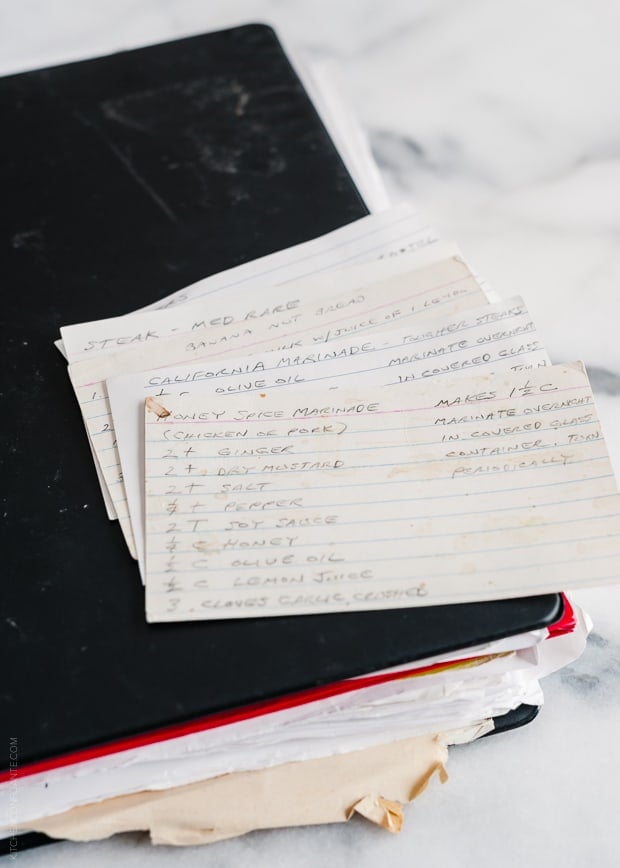 STEAK - MED RARE
BANANA NUT BREAD
MILK W/JUICE OF 1 LEMON
CALIFORNIA MARINADE - TOUGHER STEAKS
OLIVE OIL
MARINATE OVERNIGHT
IN COVERED GLASS
TURN
HONEY SPICE MARINADE
MAKES 1 1/2 C.
(CHICKEN OR PORK)
MARINATE OVERNIGHT
IN COVERED GLASS
CONTAINER, TURN
PERIODICALLY
2 t GINGER
2 t DRY MUSTARD
2 t SALT
t PEPPER
2 T SOY SAUCE
1/2 C HONEY
1/2 C OLIVE OIL
1/2 C LEMON JUICE
3 CLOVES GARLIC, CRUSHED
KITCHENCONFIDANTE.COM